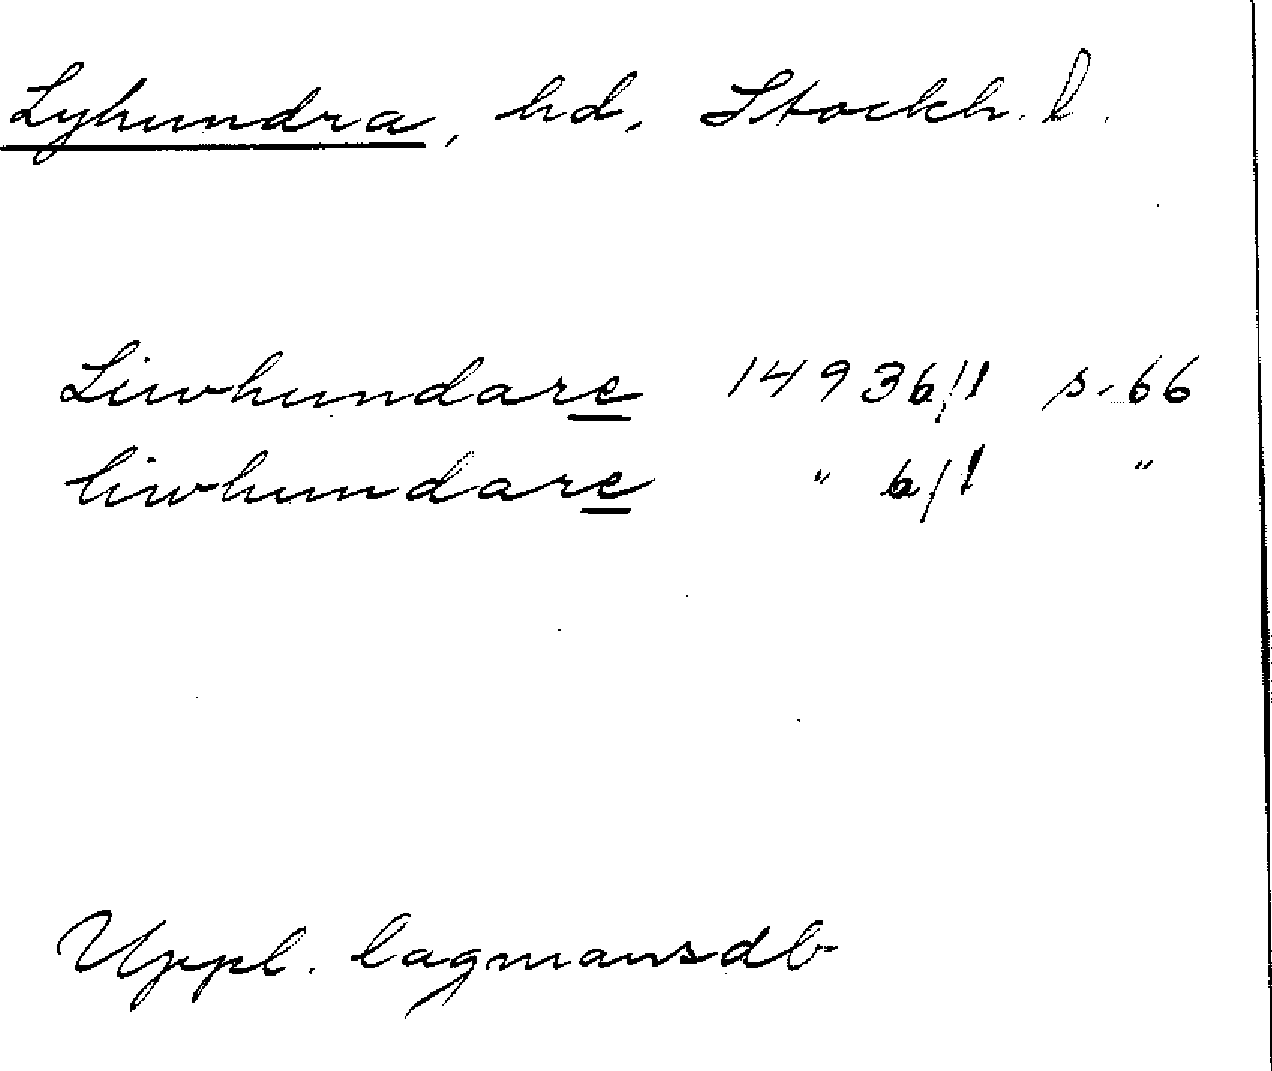 Lyhundra, hd, Stockh. l.
Liwhundare 1493 6/1 s. 66
liwhundare " 6/1 "
Uppl. lagmansdb